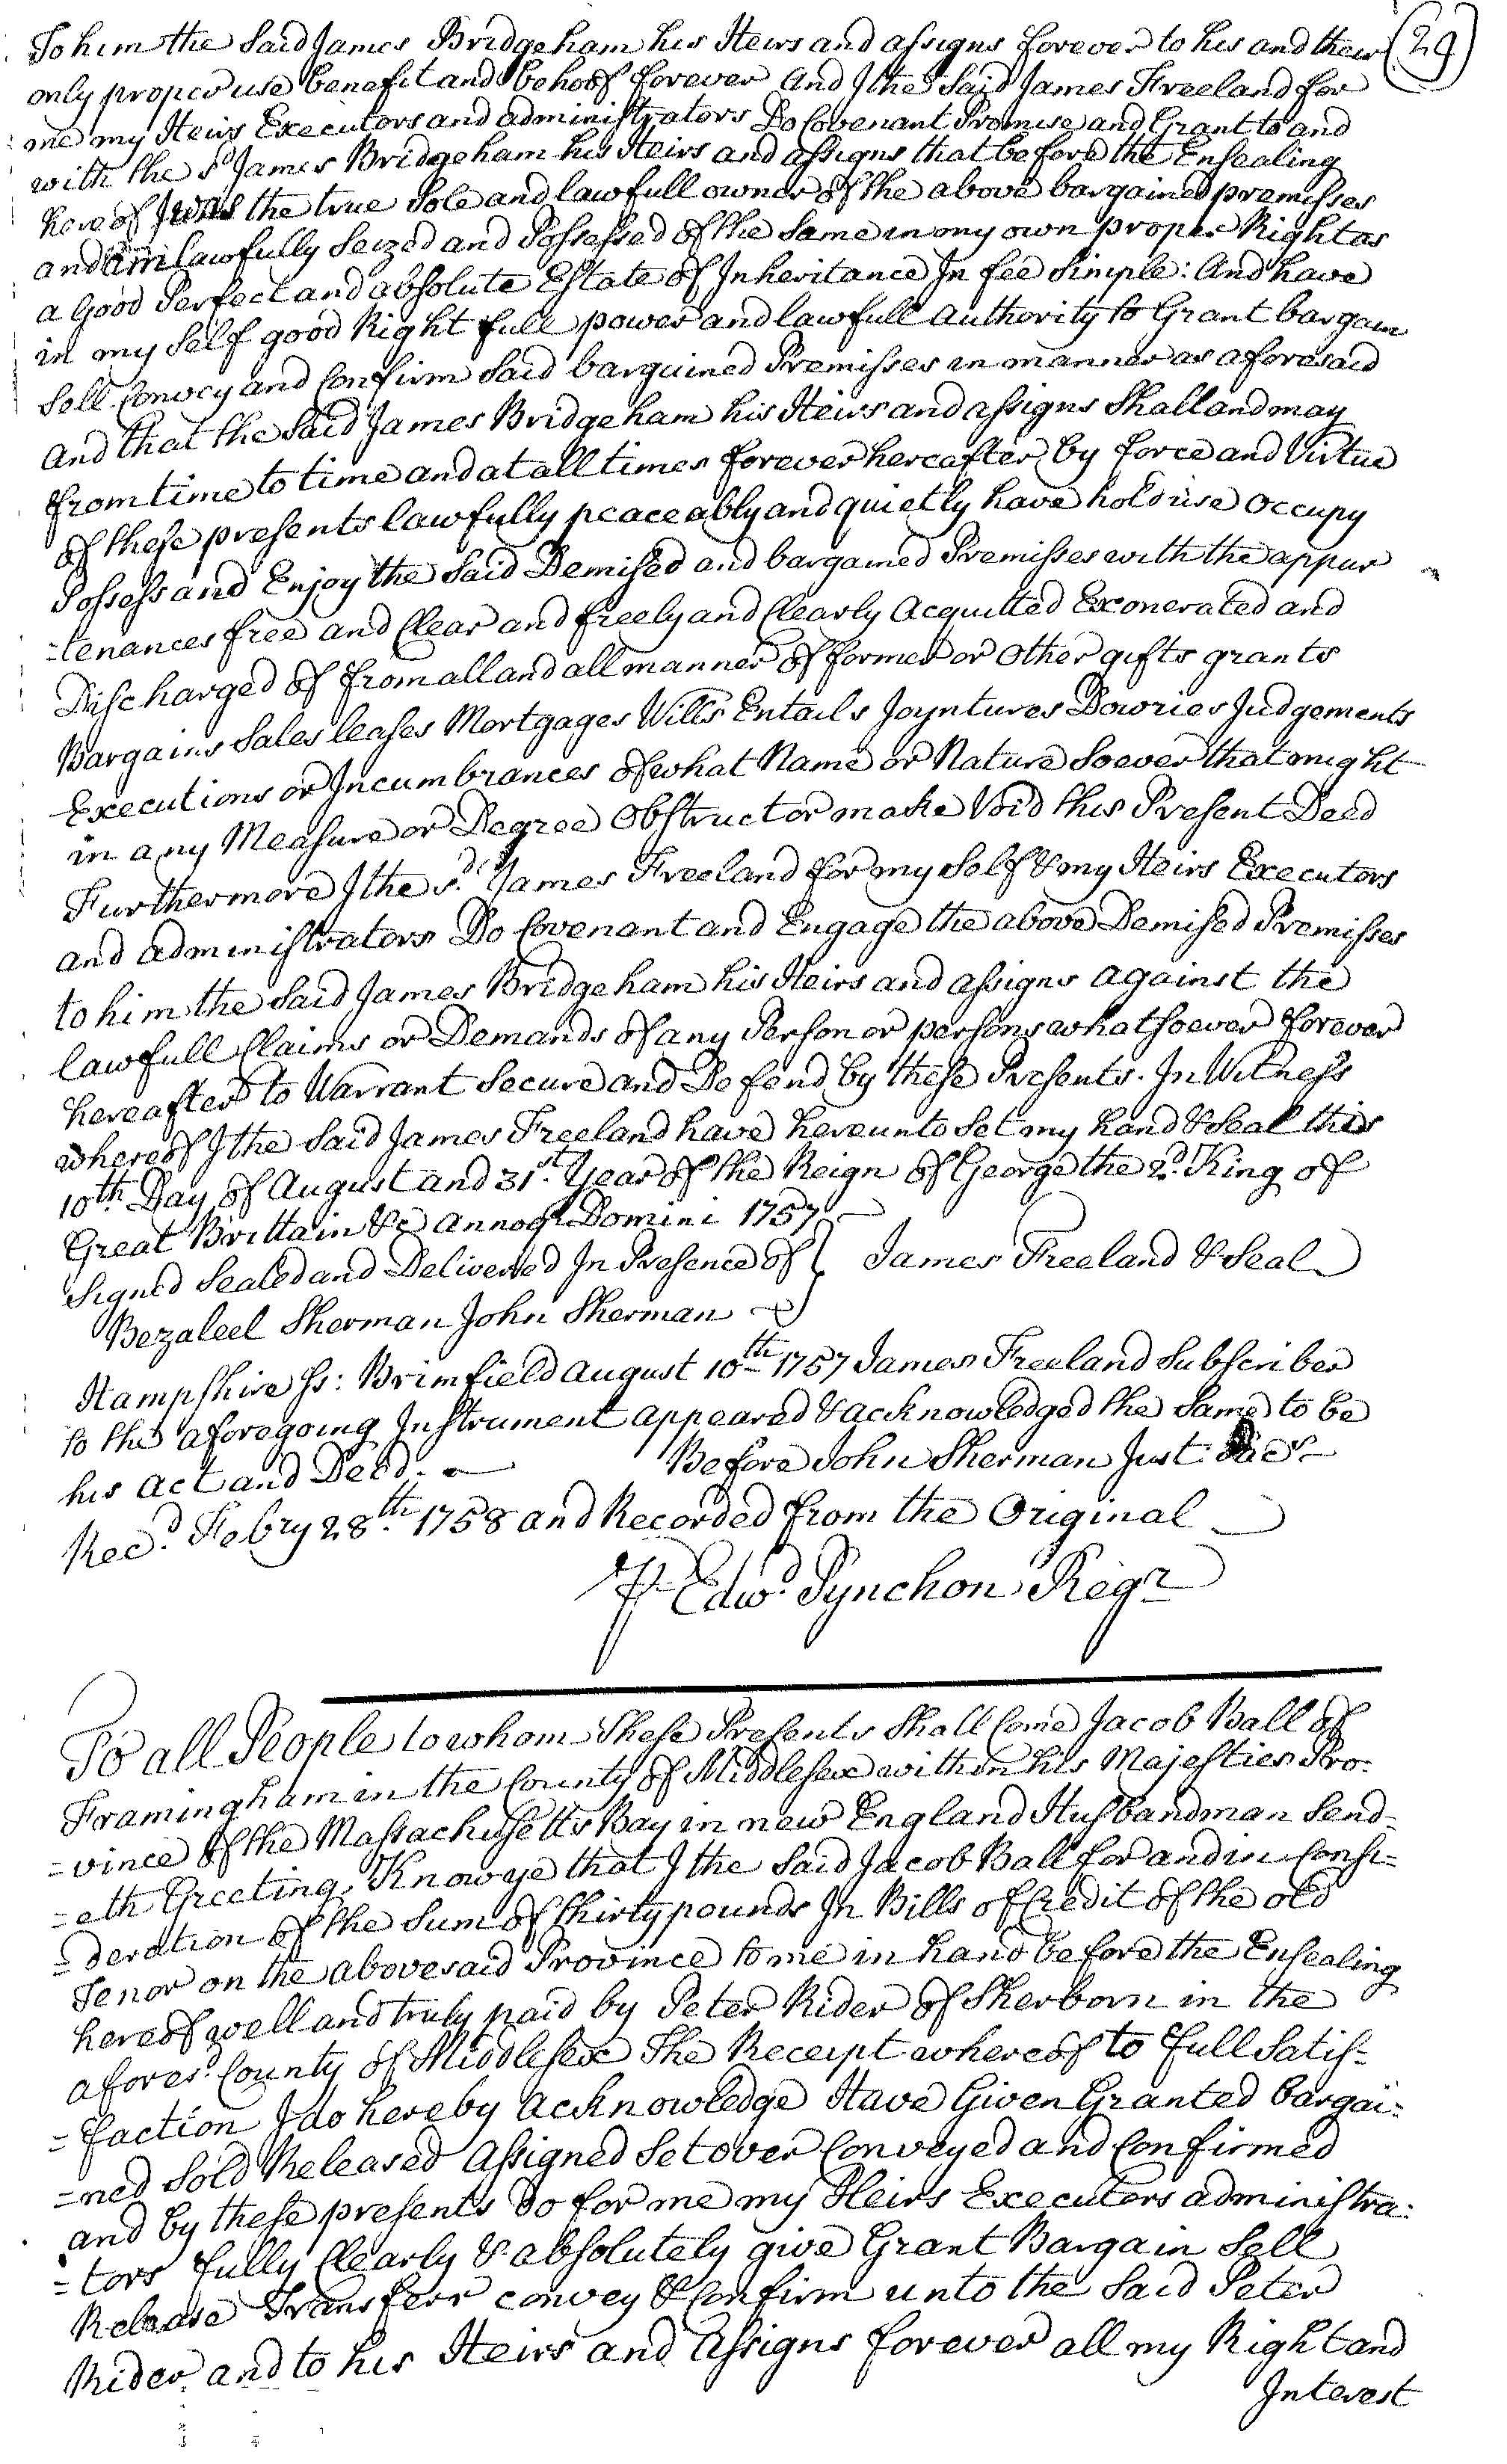 To him the Said James Bridgeham his Heirs and assigns forever to his and their (29)
only proper use benefit and behoof forever And I the Said James Freeland for
me my Heirs Executors and administrators Do Covenant Promise and Grant to and
with the sd James Bridgeham his Heirs and assigns that before the Ensealing
hereof I was the true Sole and lawfull owner of the above bargained premisses
and am lawfully Seized and Possessed of the Same in my own proper Right as
a Good Perfect and absolute Estate of Inheritance In fee Simple: And have
in my Self good Right full power and lawfull Authority to Grant bargain
Sell Convey and Confirm Said bargained Premisses in manner as aforesaid
And that the Said James Bridgeham his Heirs and assigns Shall and may
from time to time and at all times forever hereafter by force and Virtue
of these presents lawfully peaceably and quietly have hold use Occupy
Possess and Enjoy the Said Demised and bargained Premisses with the appur
=tenances free and Clear and freely and Clearly Acquitted Exonerated and
Discharged of from all and all manner of former or Other gifts grants
Bargains Sales leases Mortgages Wills Entails Joyntures Dowries Judgements
Executions or Incumbrances of what Name or Nature Soever that might
in any Measure or Degree Obstruct or make Void this Present Deed
Furthermore I the sd. James Freeland for my Self & my Heirs Executors
and administrators Do Covenant and Engage the above Demised Premisses
to him the Said James Bridgeham his Heirs and assigns against the
lawfull Claims or Demands of any Person or persons whatsoever forever
hereafter to Warrant Secure and Defend by these Presents. In Witness
whereof I the Said James Freeland have hereunto Set my hand & Seal this
10th Day of August and 31st. Year of the Reign of George the 2d. King of
Great Brittain &c Annoq Domini 1757
Signed Sealed and Delivered In Presence of } James Freeland & Seal
Bezaleel Sherman John Sherman
Hampshire Ss: Brimfield August 10th 1757 James Freeland Subscriber
to the aforegoing Instrument appeared & acknowledged the Same to be
his act and Deed. Before John Sherman Just. Pacs
Recd. Febry 28th. 1758 and Recorded from the Original
P Edwd. Pynchon Regr
To all People to whom These Presents Shall Come Jacob Ball of
Framingham in the County of Middlesex within his Majesties Pro-
=vince of the Massachusetts Bay in new England Husbandman Send=
=eth Greeting, Know ye that I the Said Jacob Ball for and in Consi=
=deration of the Sum of thirty pounds In Bills of Credit of the old
Tenor on the abovesaid Province to me in hand before the Ensealing
hereof well and truly paid by Peter Rider of Sherborn in the
afores.d County of Middlesex The Receipt whereof to full Satis=
=faction I do hereby Acknowledge Have Given Granted bargai=
=ned Sold Released Assigned Set over Conveyed and Confirmed
and by these presents do for me my Heirs Executors administra=
=tors fully Clearly & absolutely give Grant Bargain Sell
Release Transferr convey & Confirm unto the Said Peter
Rider and to his Heirs and Assigns forever all my Right and
Interest